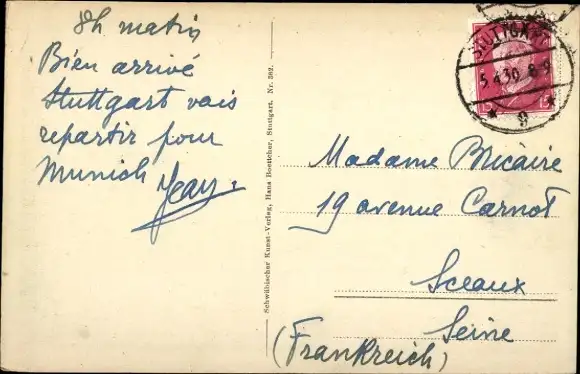 8h matin
Bien arrivé
Stuttgart vais
repartir pour
Munich Jean.
Schwäbischer Kunst-Verlag, Hans Boettcher, Stuttgart. Nr. 382.
STUTTGART
5.4.30. 8-9
* 9 *
15 15
Madame Bricaire
19 avenue Carnot
Sceaux
Seine
(Frankreich)